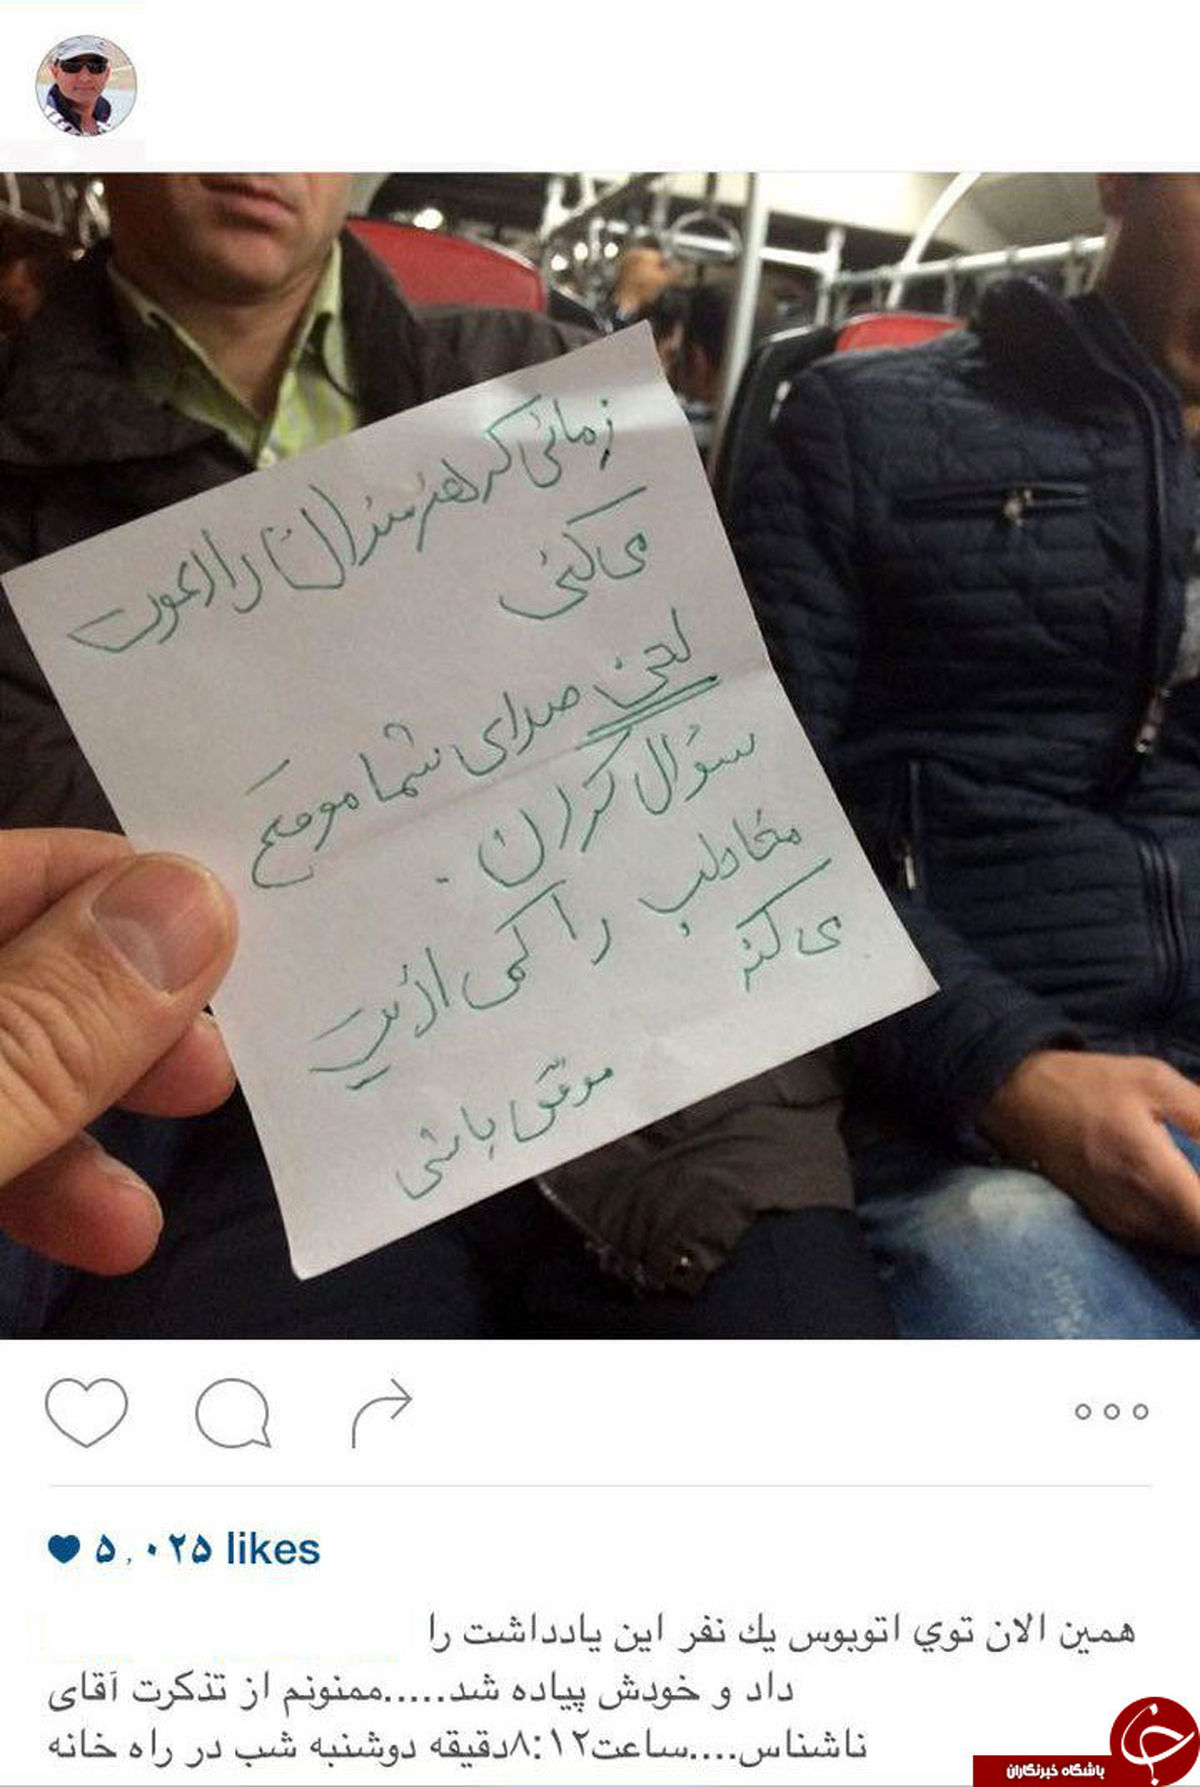 زمانی که هنرمندان را دعوت
می کنی
لحن صدای شما موقع
سؤال کردن .
مخاطب را کمی اذیت
می کند
موفق باشی
۵,۰۲۵ likes
همین الان توي اتوبوس يك نفر این یادداشت را
داد و خودش پیاده شد.....ممنونم از تذکرت آقای
ناشناس....ساعت۸:۱۲دقیقه دوشنبه شب در راه خانه
باشگاه خبرنگاران